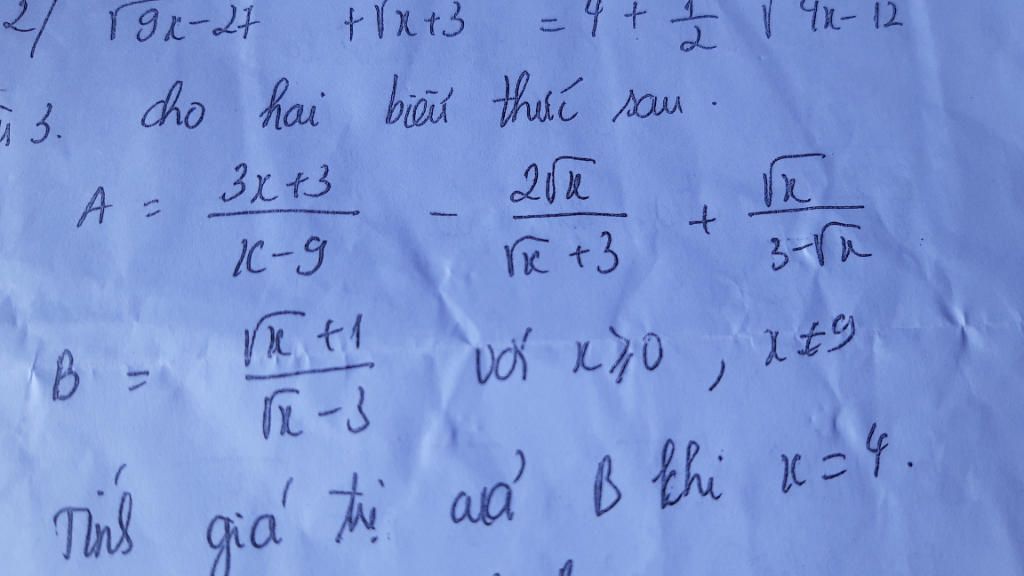 2/ √9x-27 + √x+3 = 4 + 1/2 √4x-12
3. cho hai biểu thức sau.
A = 3x+3/x-9 - 2√x/√x+3 + √x/3-√x
B = √x+1/√x-3 với x⩾0, x≠9
Tính giá trị của B khi x=4.